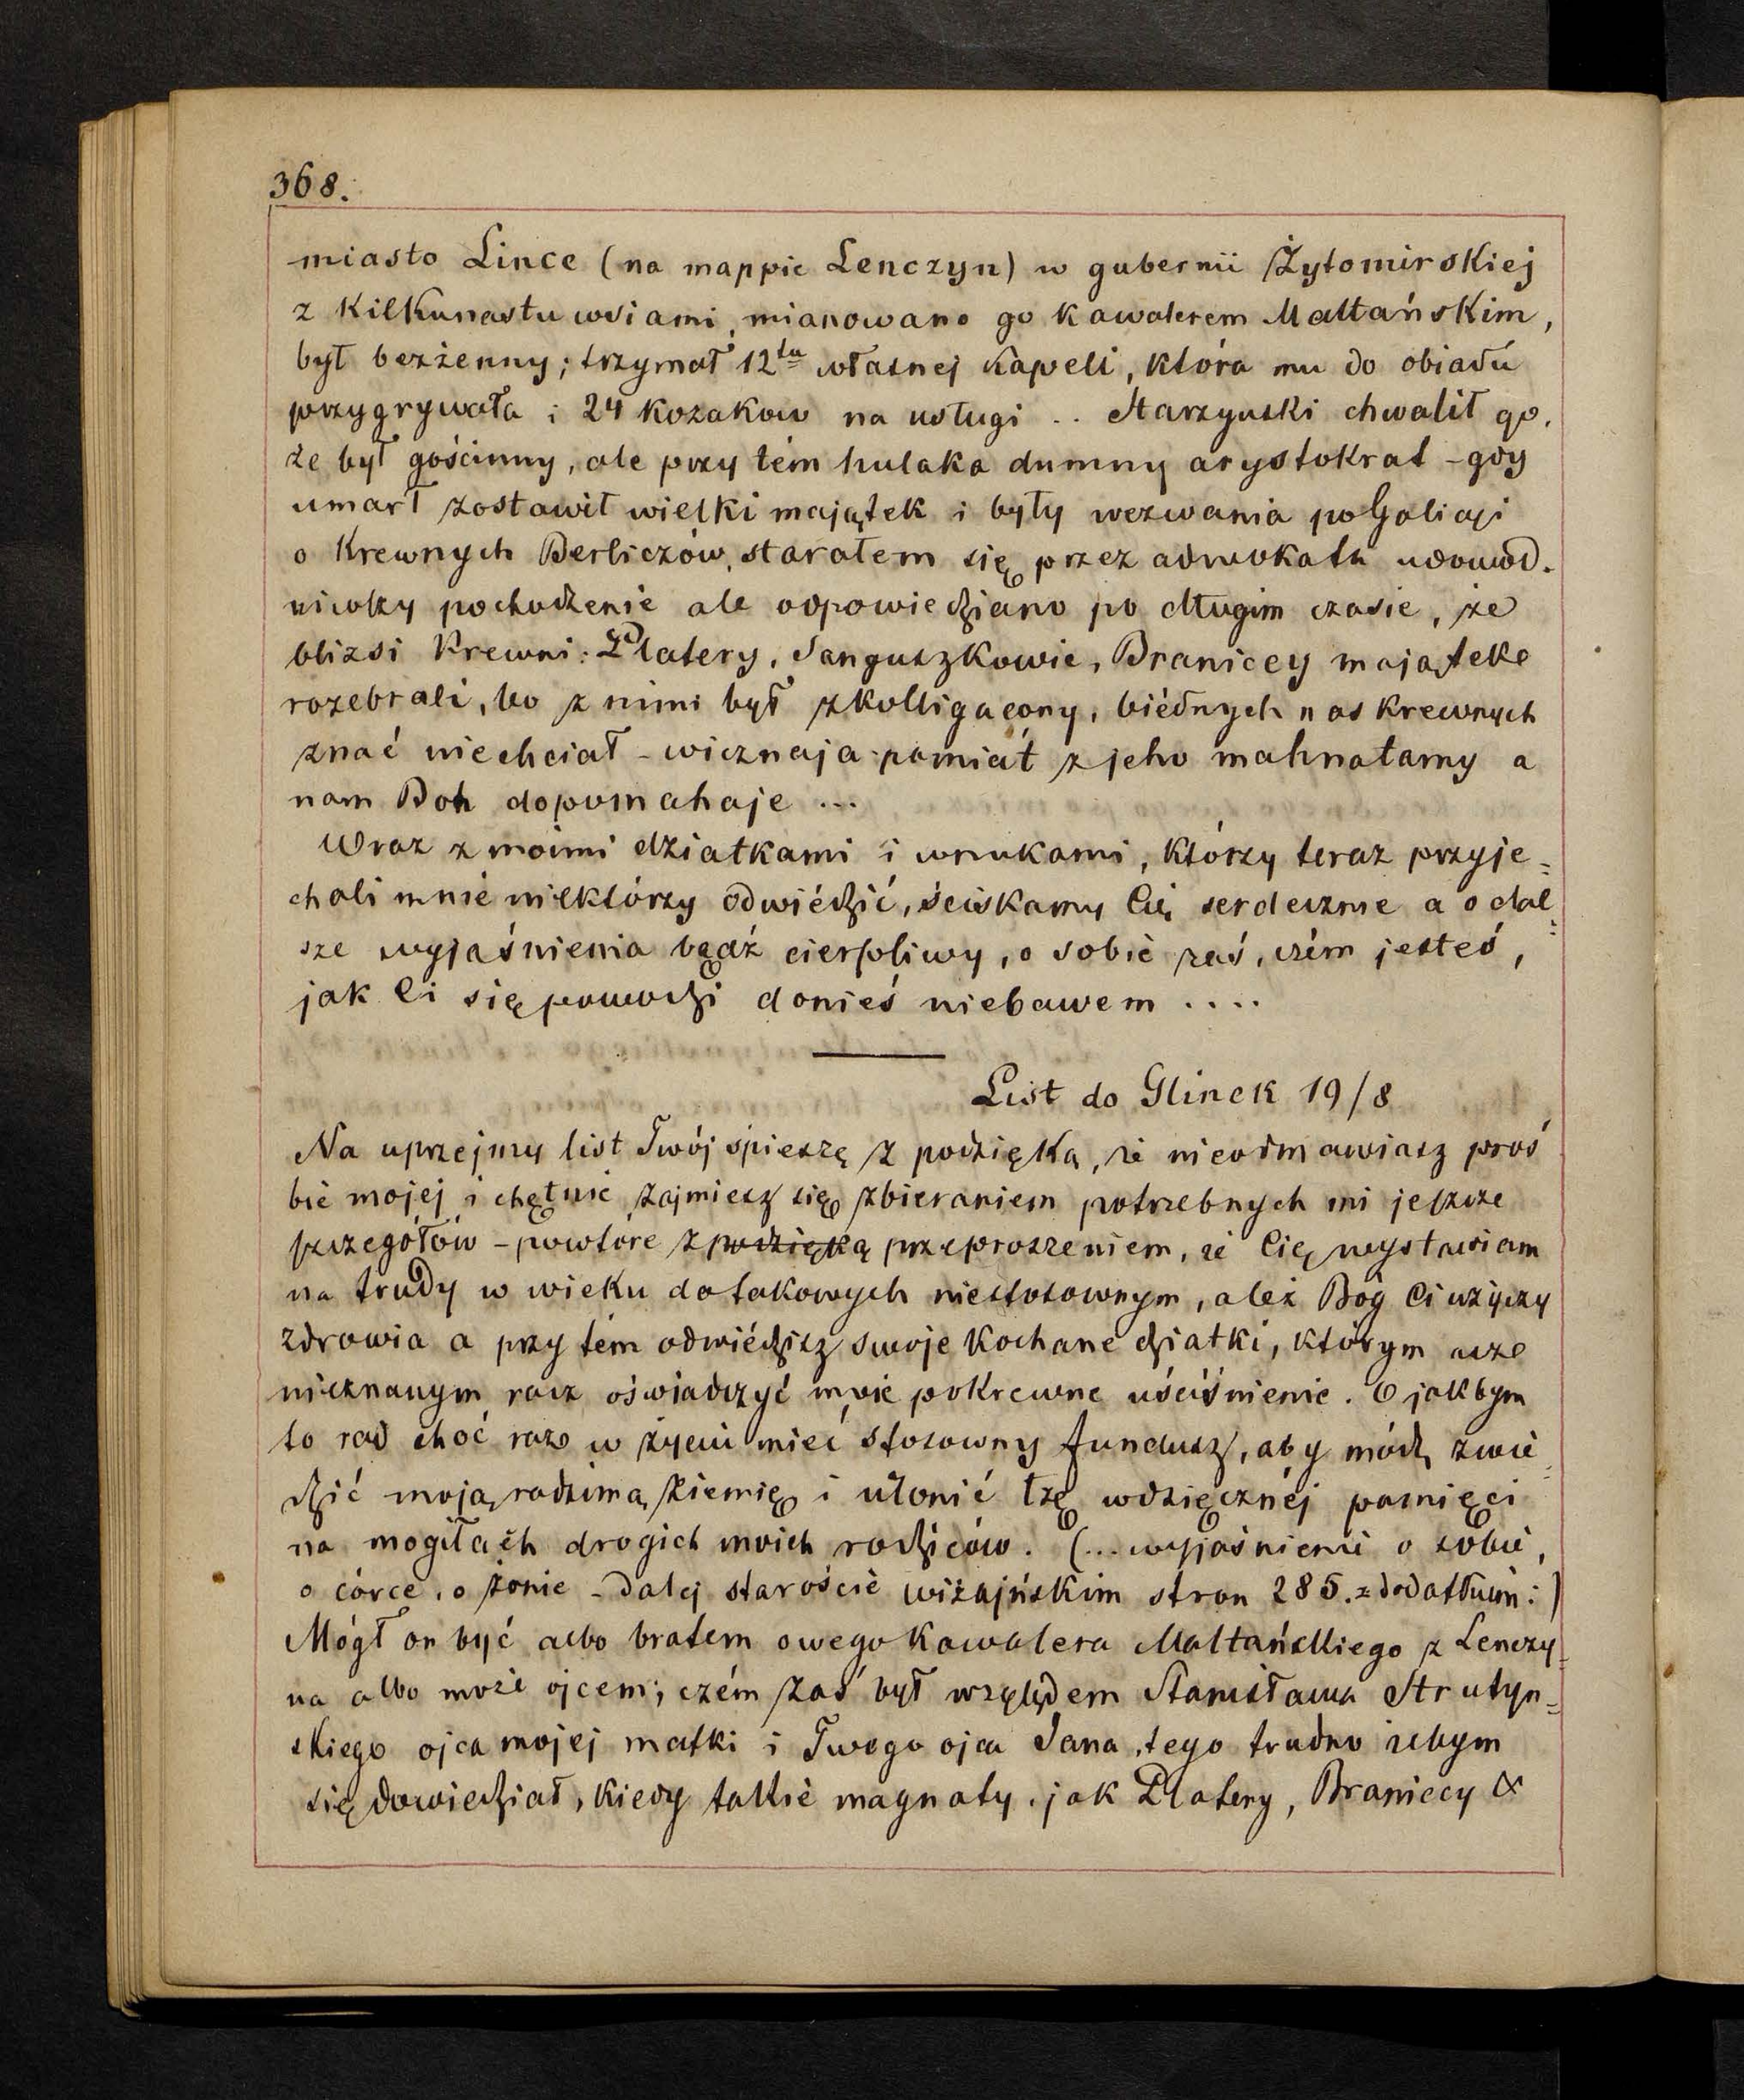 368.
miasto Lince (na mappie Lenczyn) w gubernii Żytomirskiej
z kilkunastu wsiami, mianowano go kawalerem Maltańskim,
był bezżenny; trzymał 12tu własnej kapeli, która mu do obiadu
przygrywała i 24 kozakow na usługi .. Starzyński chwalił go,
że był gościnny, ale przy tém hulaka dumny arystokrat - gdy
umarł zostawił wielki majątek i były wezwania po Galicyi
o krewnych Berliczów, starałem się przez adwokata udowod-
niwszy pochodzenie ale odpowiedziano po długim czasie, że
blizsi krewni: Platery, Sanguszkowie, Braniccy majątek
rozebrali, bo z nimi był zkolligacony, biédnych nas krewnych
znać niechciał - wicznaja pamiat' z jeho mahnatamy a
nam Boh dopomahaje ...
Wraz z moimi dziatkami i wnukami, którzy teraz przyje=
chali mnie niektórzy odwiédzić, ściskamy Cię serdecznie a o dal=
sze wyjaśnienia bądź cierpliwy, o sobie zaś, czém jesteś,
jak Ci się powodzi donieś niebawem ....
List do Glinek 19/8
Na uprzejmy list Twój spieszę z podzięką, że nieodmawiasz proś
bie mojej i chętnie zajmiesz się zbieraniem potrzebnych mi jeszcze
szczegółów - powtóre z podzięką przeproszeniem, że Cię wystawiam
na trudy w wieku do takowych niestosownym, ależ Bóg Ci użyczy
zdrowia a przy tém odwiédzisz swoje kochane dziatki, którym acz
nieznanym racz oświadczyć moje pokrewne uściśnienie. O jakbym
to rad choć raz w życiu mieć stosowny fundusz, aby módz zwie=
dzić moją rodzimą ziemię i uronić łzę wdzięcznéj pamięci
na mogiłach drogich moich rodziców. (... wyjaśnienie o sobie,
o córce, o żonie - dalej staroście wiżajńskim stron 285. z dodatkiem:)
Mógł on być albo bratem owego kawalera Maltańskiego z Lenczy=
na albo może ojcem; czém zaś był względem Stanisława Strutyn=
skiego ojca mojej matki i Twego ojca Jana, tego trudno żebym
się dowiedział, kiedy takie magnaty, jak Platery, Braniecy &